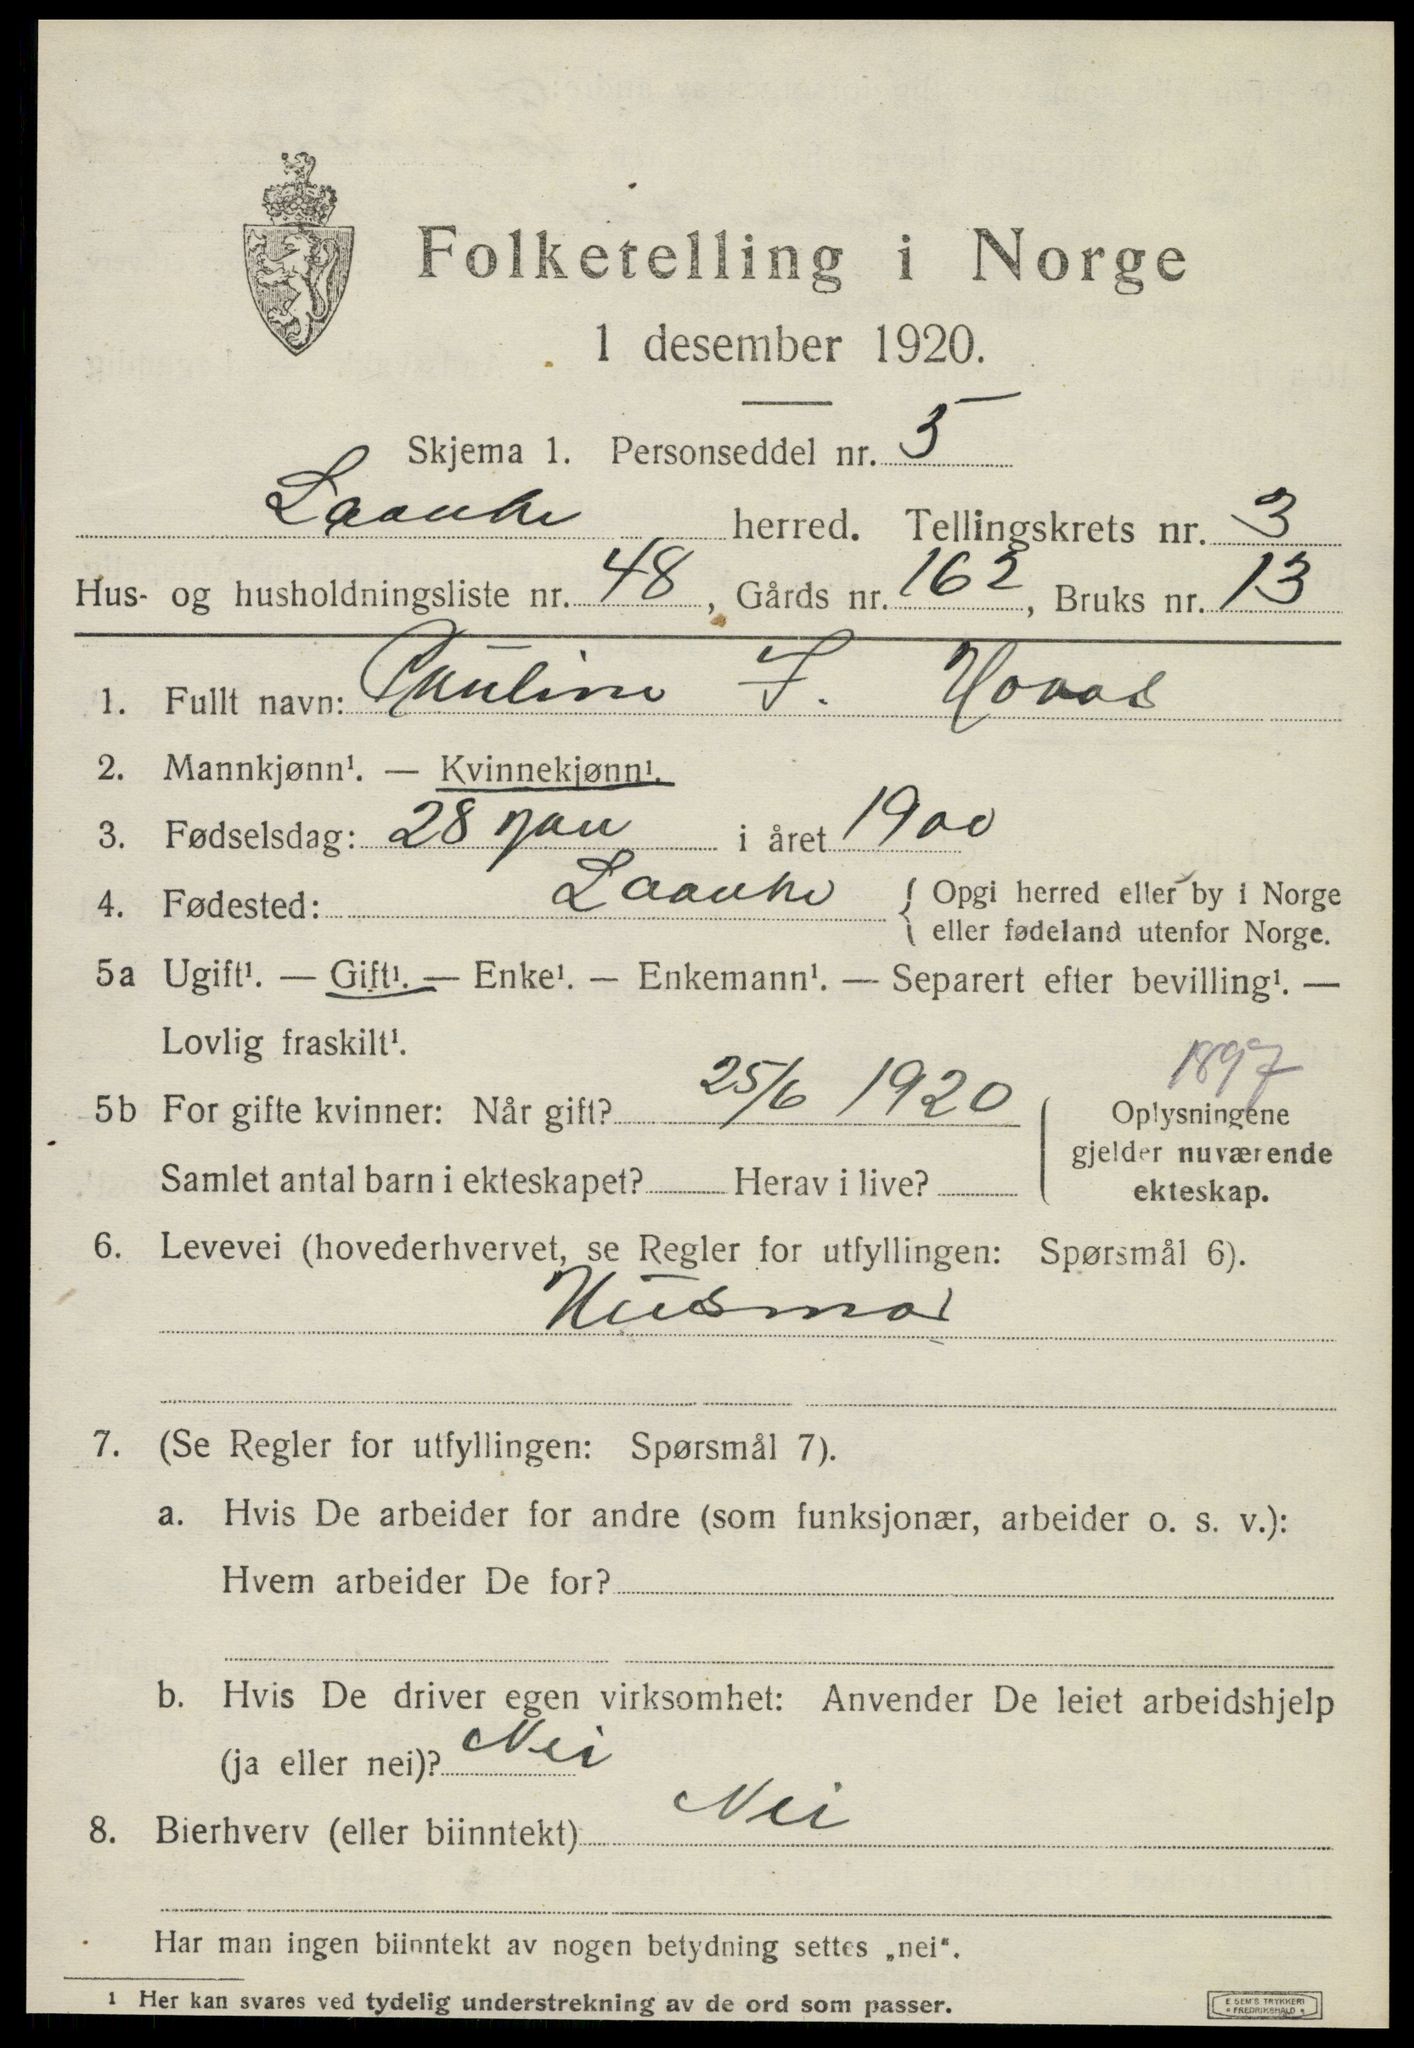 Folketelling i Norge
1 desember 1920.
Skjema 1. Personseddel nr. 5
Laanke herred. Tellingskrets nr. 3
Hus- og husholdningsliste nr. 48, Gårds nr. 162, Bruks nr. 13
1. Fullt navn: Pauline F. Hovas
2. Mannkjønn¹. — Kvinnekjønn¹.
3. Fødselsdag: 28 jan i året 1900
4. Fødested: Laanke { Opgi herred eller by i Norge
eller fødeland utenfor Norge.
5a Ugift¹. — Gift¹. — Enke¹. — Enkemann¹. — Separert efter bevilling¹. —
Lovlig fraskilt¹.
1897
5b For gifte kvinner: Når gift? 25/6 1920 { Oplysningene
gjelder nuværende
Samlet antal barn i ekteskapet? Herav i live?
ekteskap.
6. Levevei (hovederhvervet, se Regler for utfyllingen: Spørsmål 6).
Husmor
7. (Se Regler for utfyllingen: Spørsmål 7).
a. Hvis De arbeider for andre (som funksjonær, arbeider o. s. v.):
Hvem arbeider De for?
b. Hvis De driver egen virksomhet: Anvender De leiet arbeidshjelp
(ja eller nei)? Nei
8. Bierhverv (eller biinntekt) Nei
Har man ingen biinntekt av nogen betydning settes „nei“.
1 Her kan svares ved tydelig understrekning av de ord som passer.
E SEM'S TRYKKERI
FREDRIKSHALD